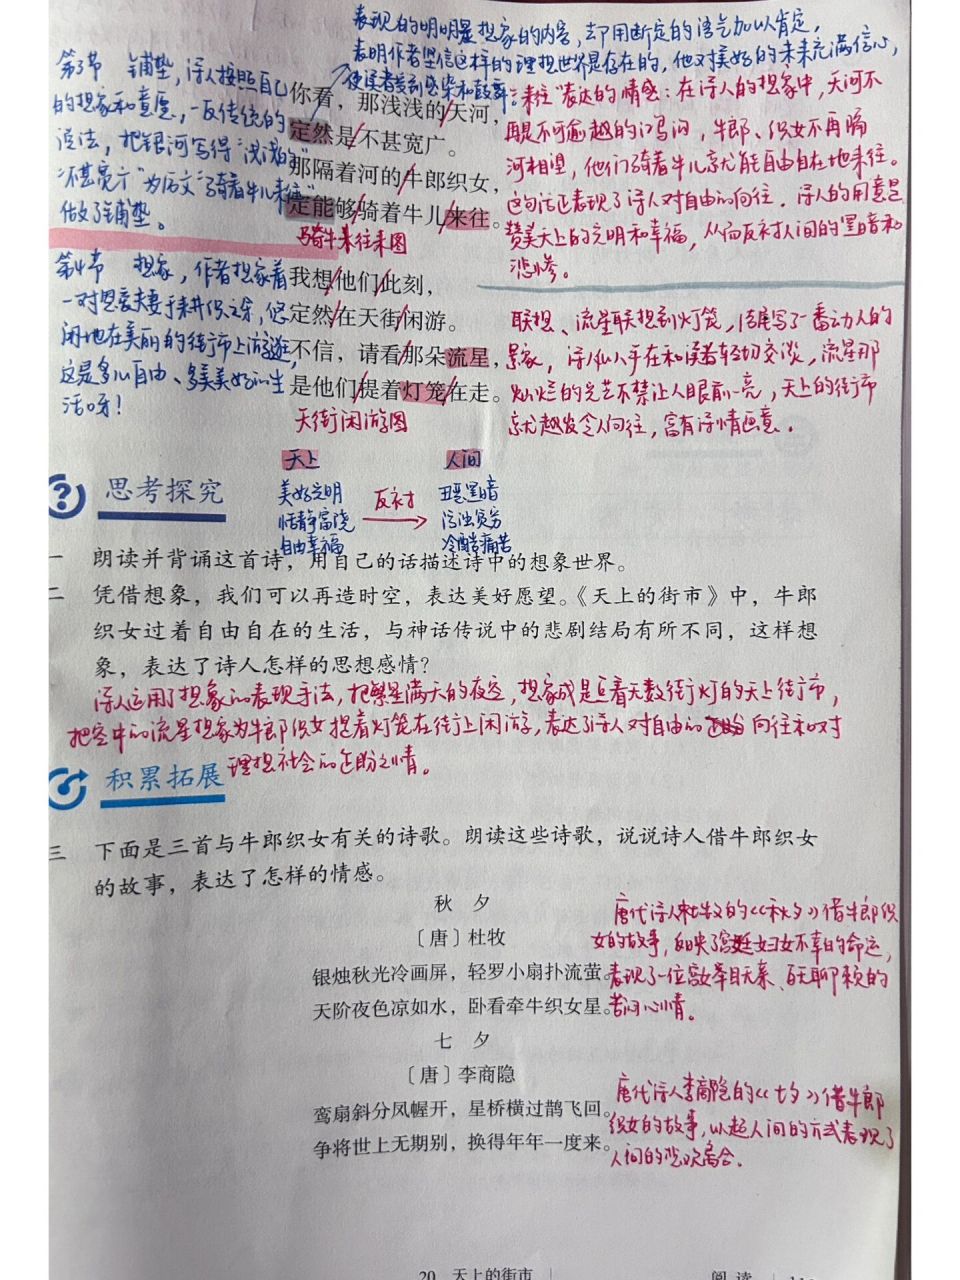 表现的明明是想象的内容,却用断定的语气加以肯定,
表明作者坚信这样的理想世界是存在的,他对美好的未来充满信心,
使读者受到感染和鼓舞。
第3节 铺垫,诗人按照自己
的想象和意愿,一反传统的
说法,把银河写得“浅浅的”
“不甚宽广”为后文“骑着牛儿来往”
做了铺垫。
你看,那浅浅的天河,
定然是不甚宽广。
那隔着河的牛郎织女,
定能够骑着牛儿来往。
骑牛来往来图
“来往”表达的情感:在诗人的想象中,天河不
再是不可逾越的鸿沟,牛郎、织女不再隔
河相望,他们骑着牛儿就能自由自在地来往。
这句话正表现了诗人对自由的向往。诗人的用意是
赞美天上的光明和幸福,从而反衬人间的黑暗和
悲惨。
第4节 想象,作者想象着
一对恩爱夫妻手来并织之牙,悠
闲地在美丽的街市上游逛
这是多么自由、多美美好的生
活呀!
我想他们此刻,
定然在天街闲游。
不信,请看那朵流星,
是他们提着灯笼在走。
天街闲游图
联想、流星联想到灯笼,活展写了一番动人的
景象,诗人似乎在和读者轻切交谈,流星那
灿烂的光芒不禁让人眼前一亮,天上的街市
就越发令人向往,富有诗情画意。
天上 人间
美好光明 丑恶黑暗
恬静富饶 反衬 污浊贫穷
自由幸福 冷酷痛苦
思考探究
一 朗读并背诵这首诗,用自己的话描述诗中的想象世界。
二 凭借想象,我们可以再造时空,表达美好愿望。《天上的街市》中,牛郎
织女过着自由自在的生活,与神话传说中的悲剧结局有所不同,这样想
象,表达了诗人怎样的思想感情?
诗人运用了想象的表现手法,把繁星满天的夜空,想象成是点着无数街灯的天上街市,
把空中的流星想象为牛郎织女提着灯笼在街上闲游,表达了诗人对自由的向往和对
理想社会的企盼之情。
积累拓展
三 下面是三首与牛郎织女有关的诗歌。朗读这些诗歌,说说诗人借牛郎织女
的故事,表达了怎样的情感。
秋 夕
〔唐〕杜牧
银烛秋光冷画屏,轻罗小扇扑流萤。
天阶夜色凉如水,卧看牵牛织女星。
唐代诗人杜牧的《秋夕》借牛郎织
女的故事,反映了宫廷妇女不幸的命运,
表现了一位宫女举目无亲、百无聊赖的
苦闷心情。
七 夕
〔唐〕李商隐
鸾扇斜分凤幄开,星桥横过鹊飞回。
争将世上无期别,换得年年一度来。
唐代诗人李商隐的《七夕》借牛郎
织女的故事,以超人间的方式表现了
人间的悲欢离合。
20 天上的街市 阅 读